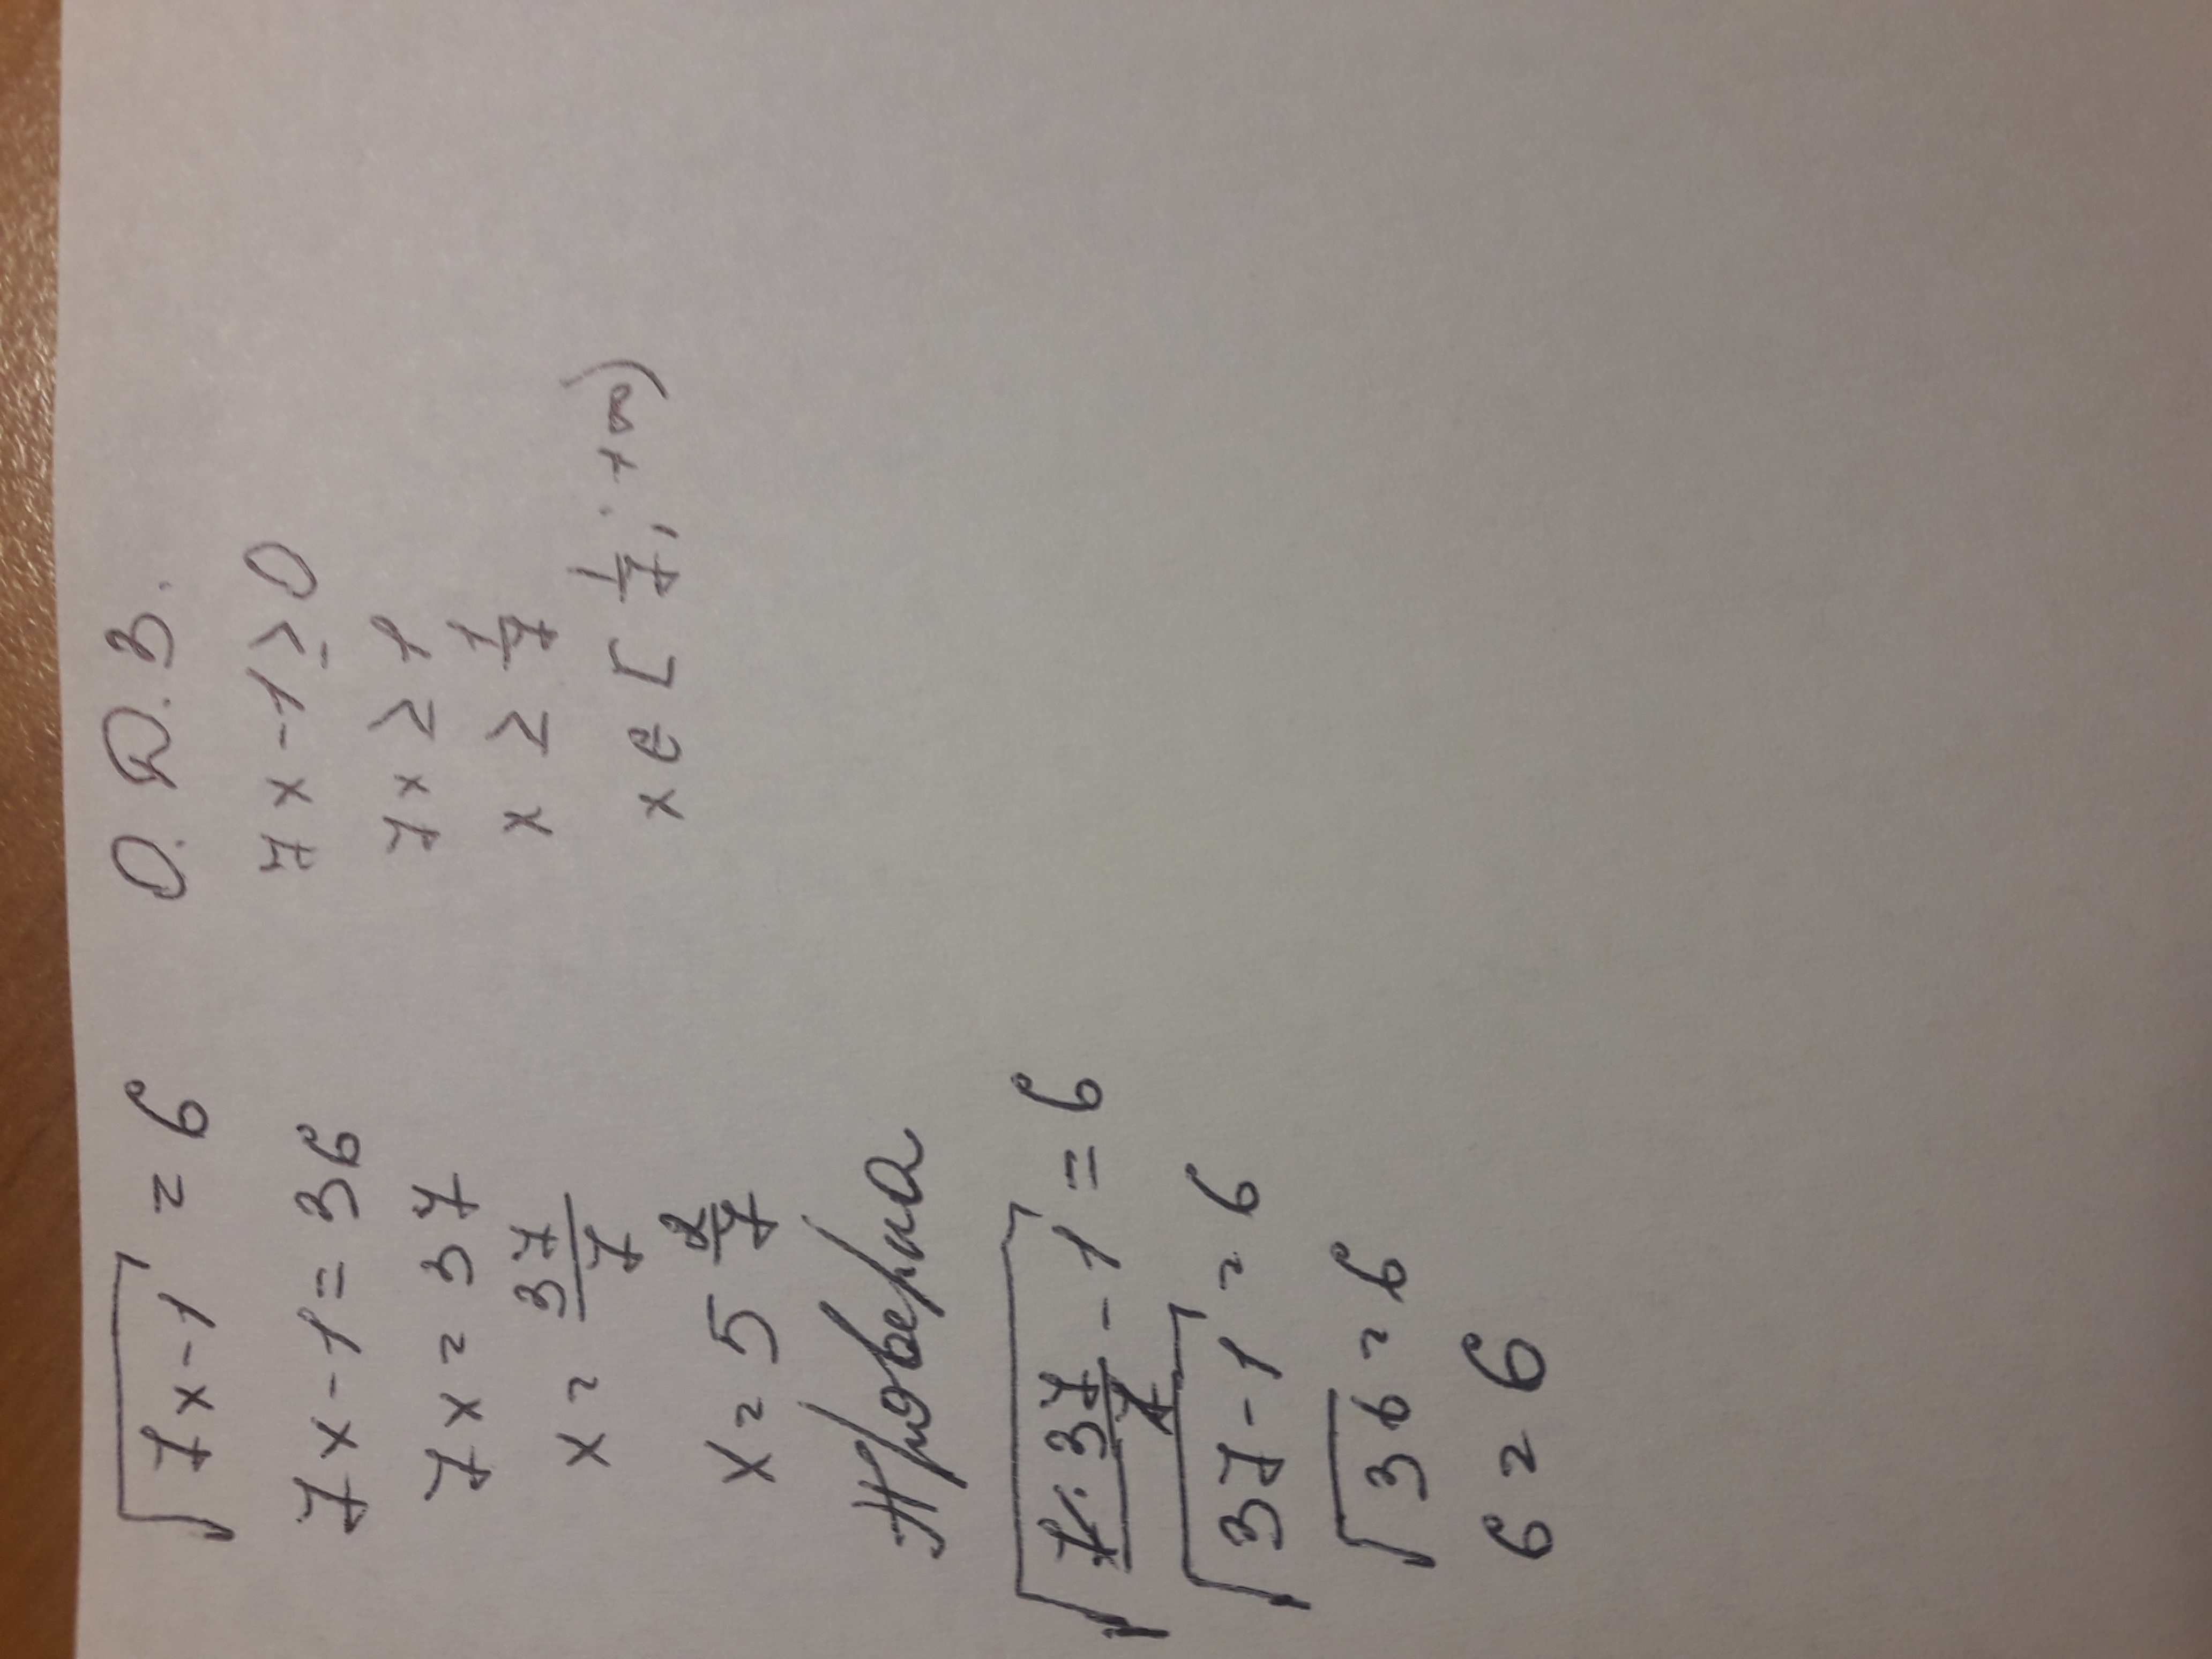 √7x-1 = 6
7x-1 = 36
7x = 37
x = 37/7
x = 5 2/7
Проверка
√7·37/7 - 1 = 6
√37-1 = 6
√36 = 6
6 = 6
О.Д.З.
7x-1≥0
7x ≥ 1
x ≥ 1/7
x ∈ [1/7; +∞)